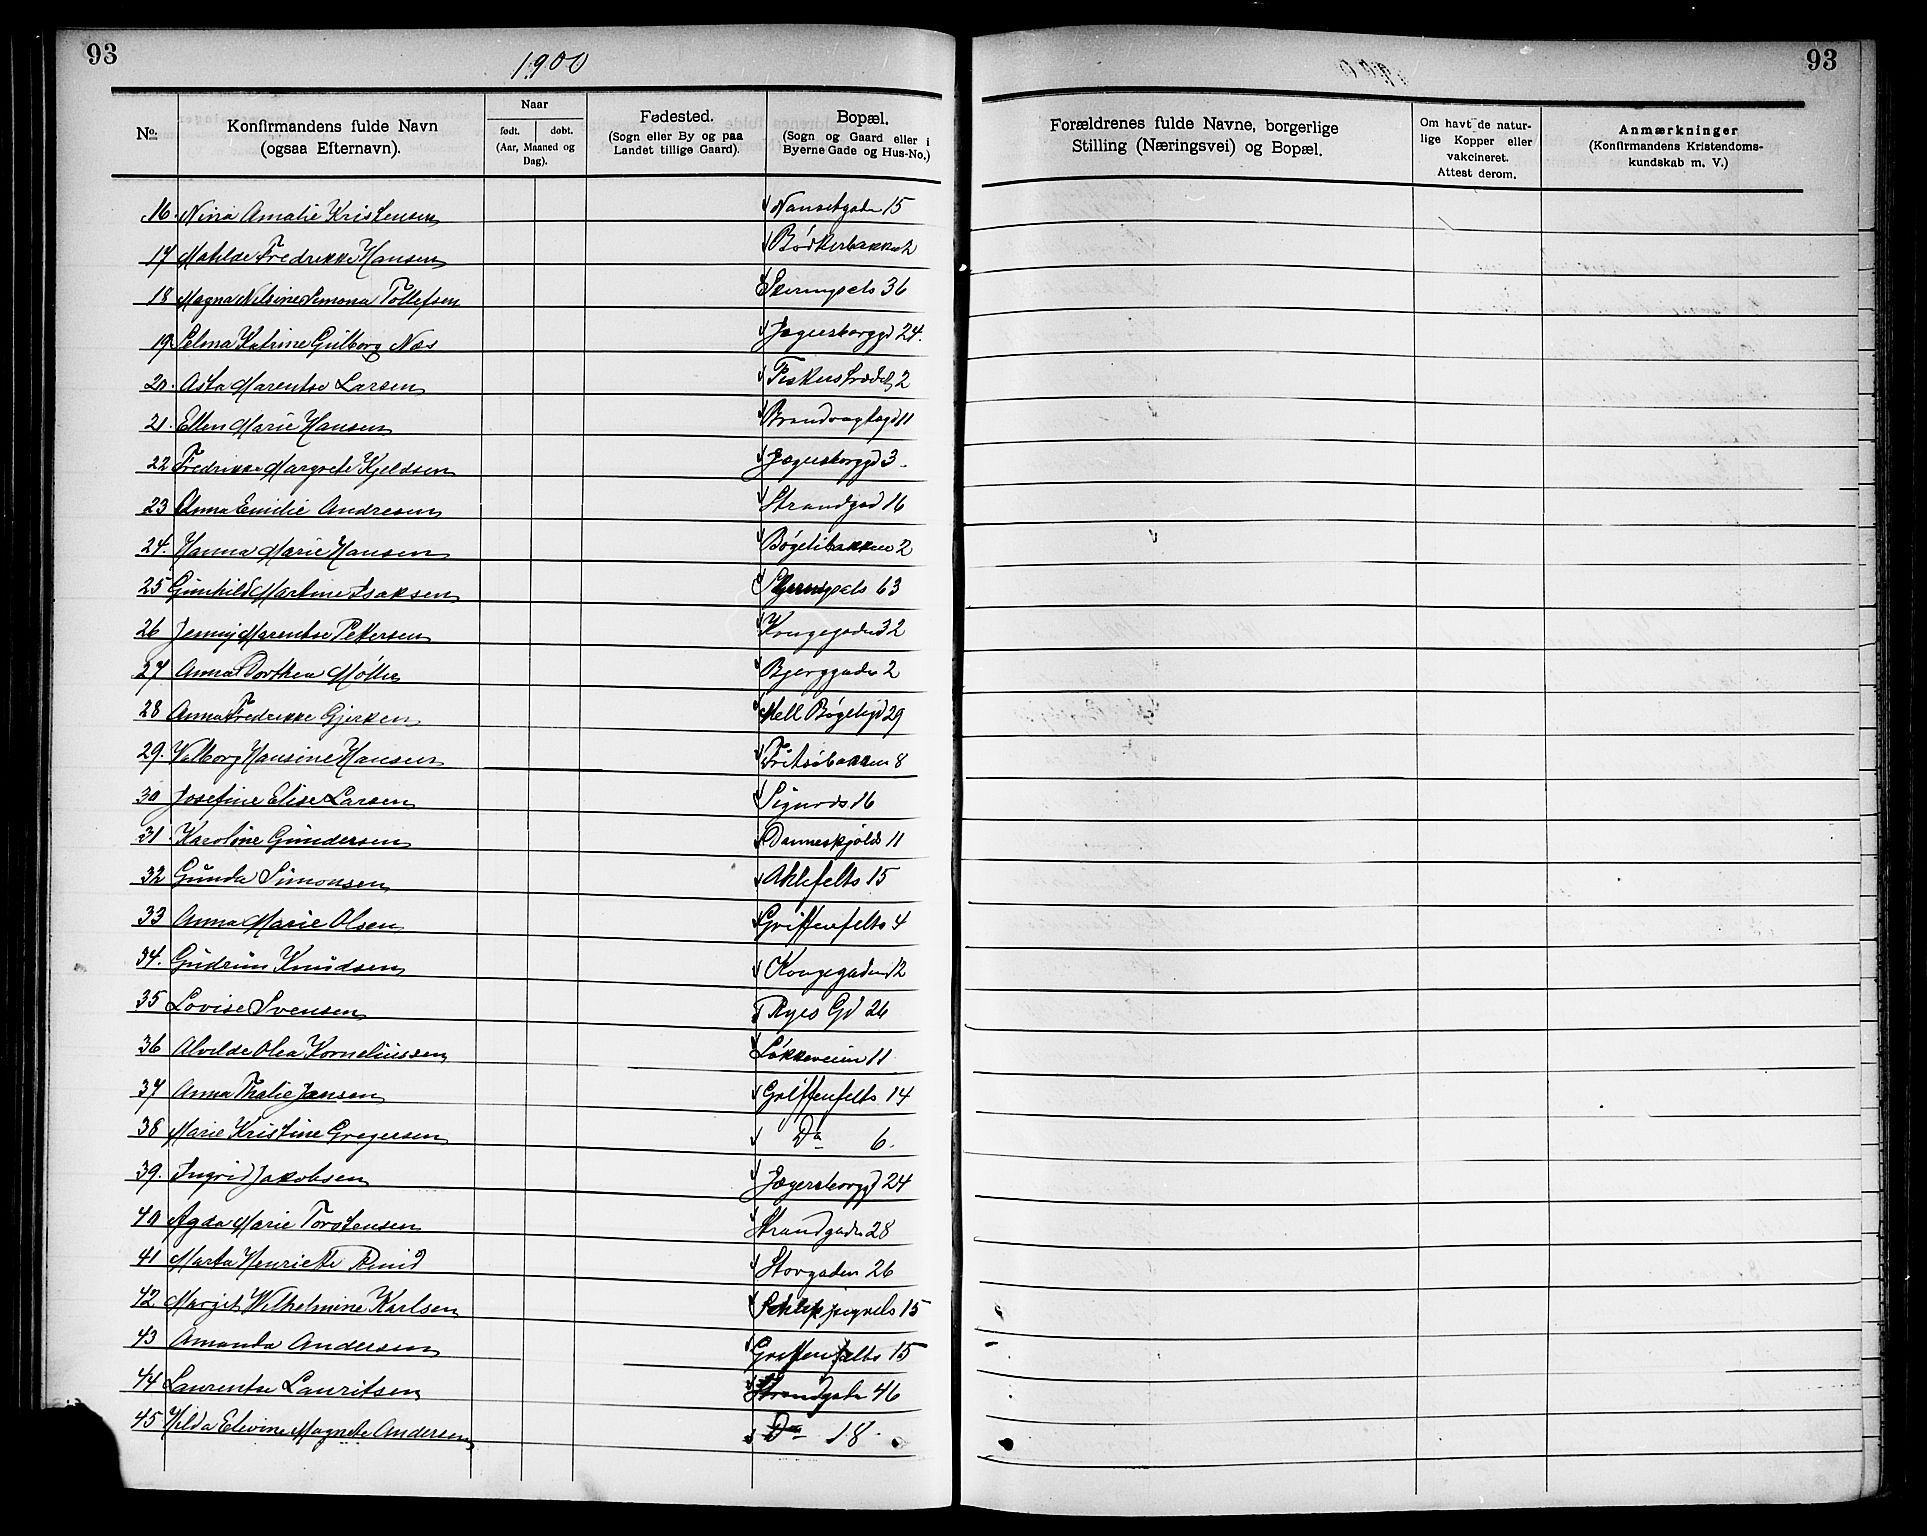 93
1900
No.
Konfirmandens fulde Navn
(ogsaa Efternavn).
Naar
født. døbt.
(Aar, Maaned og
Dag).
Fødested.
(Sogn eller By og paa
Landet tillige Gaard).
Bopæl.
(Sogn og Gaard eller i
Byerne Gade og Hus-No.)
16. Nina Amalie Kristensen Nansetgade 15
17 Matilde Fredrikke Hansen Bødkerbakken 2
18 Magna Nilsine Simona Tollefsen 36
19 Selma Katrine Gulborg Næs Jegersborggd 24.
20. Asta Marentse Larsen Fiskerstrædet 2
21. Ellen Marie Hansen Brandvagtsgd 11
22 Fredrikke Margrete Kjeldsen Jegersborggd 3.
23 Anna Emilie Andresen Strandgad 16
24. Hanna Marie Hansen Bøgelibakken 2
25 Gunhild Martine Isaksen 63
26 Jenny Marentse Pettersen Kongegaden 32
27 Anna Dorthea Møller Bjerggaden 2
28 Anna Fredrikke Gjerken Mell Bøgeligd 29
29. Valborg Hansine Hansen Fritsøbakken 8
30 Josefine Elise Larsen Sigurds 16
31. Karoline Gundersen Danneskjolds 11
32 Gunda Simonsen Ahlefelts 15
33 Anna Marie Olsen Griffenfelts 4
34. Gudrun Knudsen Kongegaden 12
35 Lovise Svensen Ryes Gd 26
36 Alvilde Olea Korneliussen Løkkeveien 11
37 Anna Thalie Jansen Griffenfelts 14
38 Marie Kristine Gregersen Do 6.
39. Ingrid Jakobsen Jægersborggd 24
40 Agda Marie Torstensen Strandgaden 28
41 Marta Henriette Storgaden 26
42. Margit Wilhelmine Karlsen 15
43 Amanda Andersen Griffenfelts 15
44 Laurentse Lauritsen Strandgade 46
45 Hilda Elevine Magnete Andersen Do 18.
93
Forældrenes fulde Navne, borgerlige
Stilling (Næringsvei) og Bopæl.
Om havt de natur-
lige Kopper eller
vakcineret.
Attest derom.
Anmærkninger
(Konfirmandens Kristendoms-
kundskab m. V.)